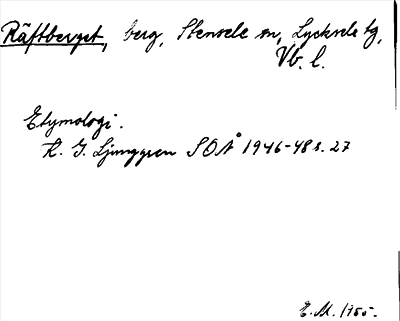 Räftberget, berg, Stensele sn, Lycksele tg,
Vb. l.
Etymologi.
K. G. Ljunggren SOÅ 1946-48 s. 27
E. M. 1955.